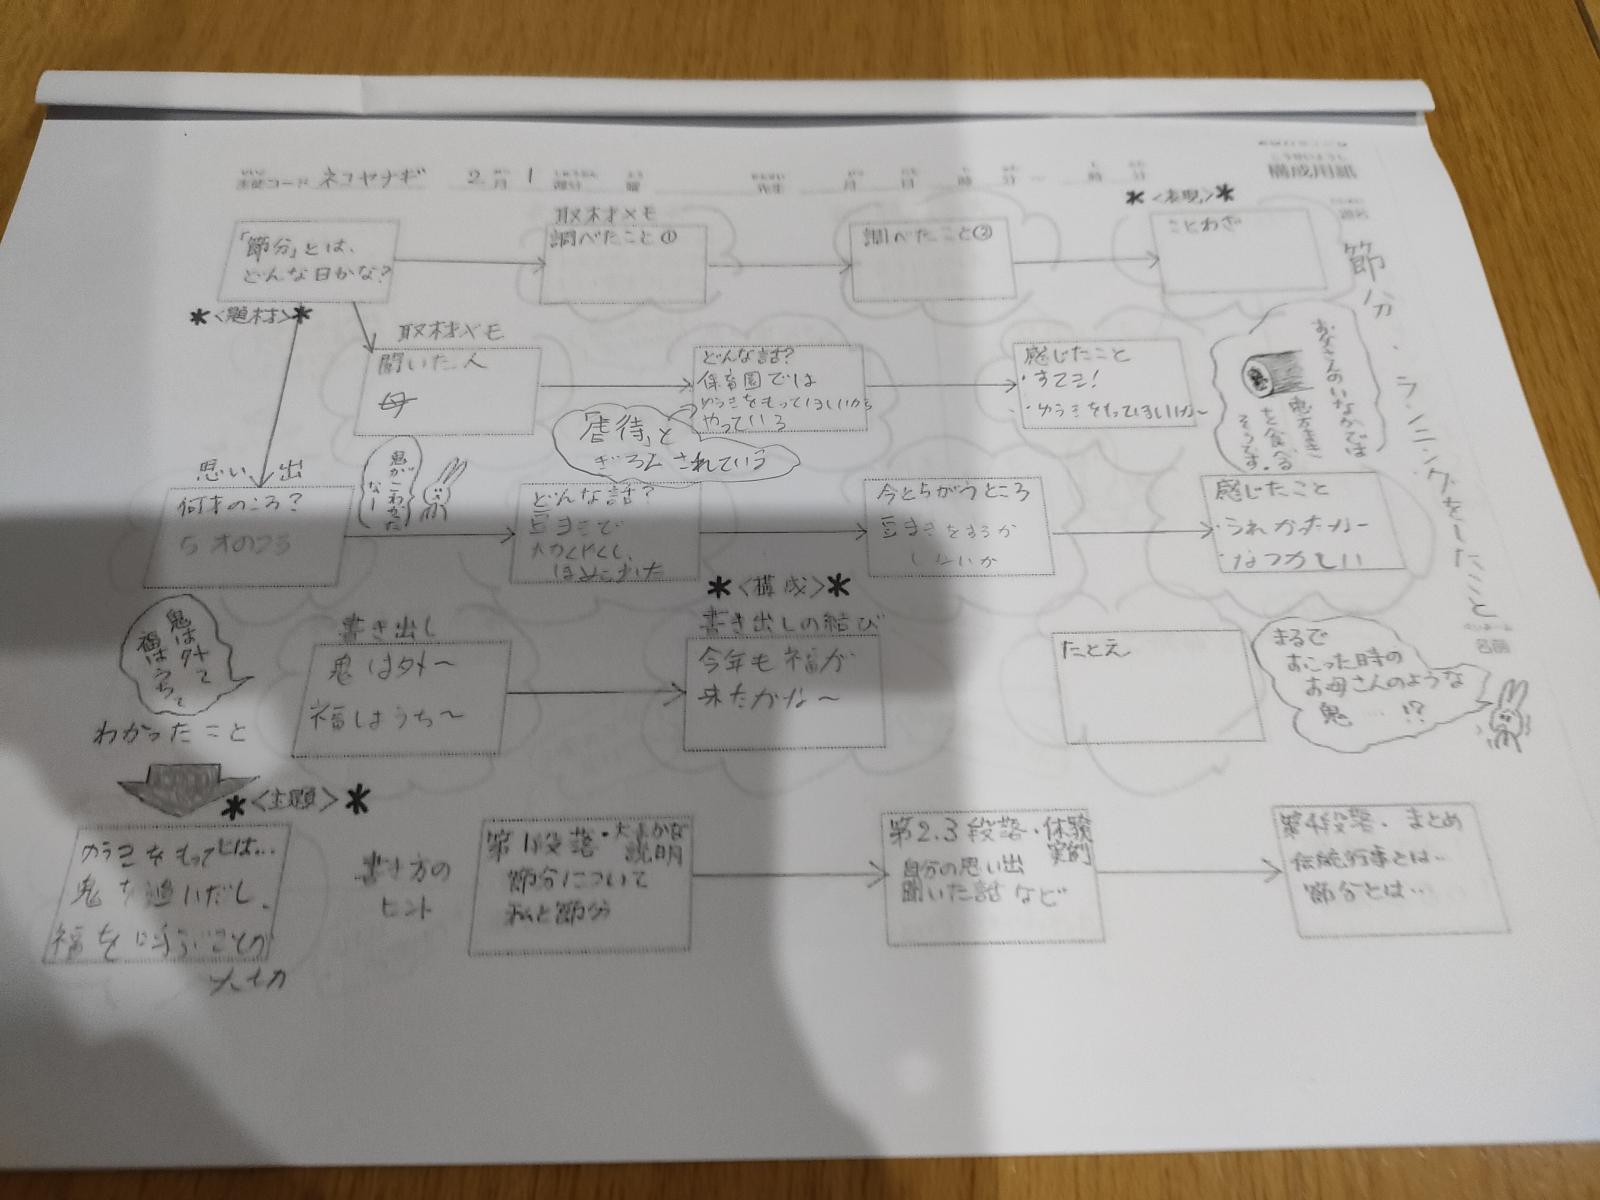 構成用紙
ネコヤナギ 2月 1
節分、ランニングをしたこと
名前
「節分」とは、
どんな日かな?
*<題材>*
取材メモ
調べたこと①
調べたこと②
*<表現>*
ことわざ
取材メモ
聞いた人
母
どんな話?
保育園では
ゆうきをもってほしいから
やっている
「虐待」と
ぎろんされている
感じたこと
・すてき!
・ゆうきをもってほしいから
お父さんのいなかでは
恵方まき
を食べる
そうです。
思い出
何才のころ?
5才のころ
鬼がこわかった
なー
どんな話?
豆まきで
大かくやくし、
ほめられた
今とちがうところ
豆まきをするか
しないか
感じたこと
・うれしかったなー
・なつかしい
鬼は外って
福はうちって
わかったこと
書き出し
鬼は外〜
福はうち〜
*<構成>*
書き出しの結び
今年も福が
来たかな〜
たとえ
まるで
おこった時の
お母さんのような
鬼…!?
*<主題>*
鬼を追いだし、
福を呼ぶことが
大切
書き方の
ヒント
第1段落・大まかな
説明
節分について
私と節分
第2.3段落・体験
実例
自分の思い出
聞いた話など
第4段落・まとめ
伝統行事とは…
節分とは…